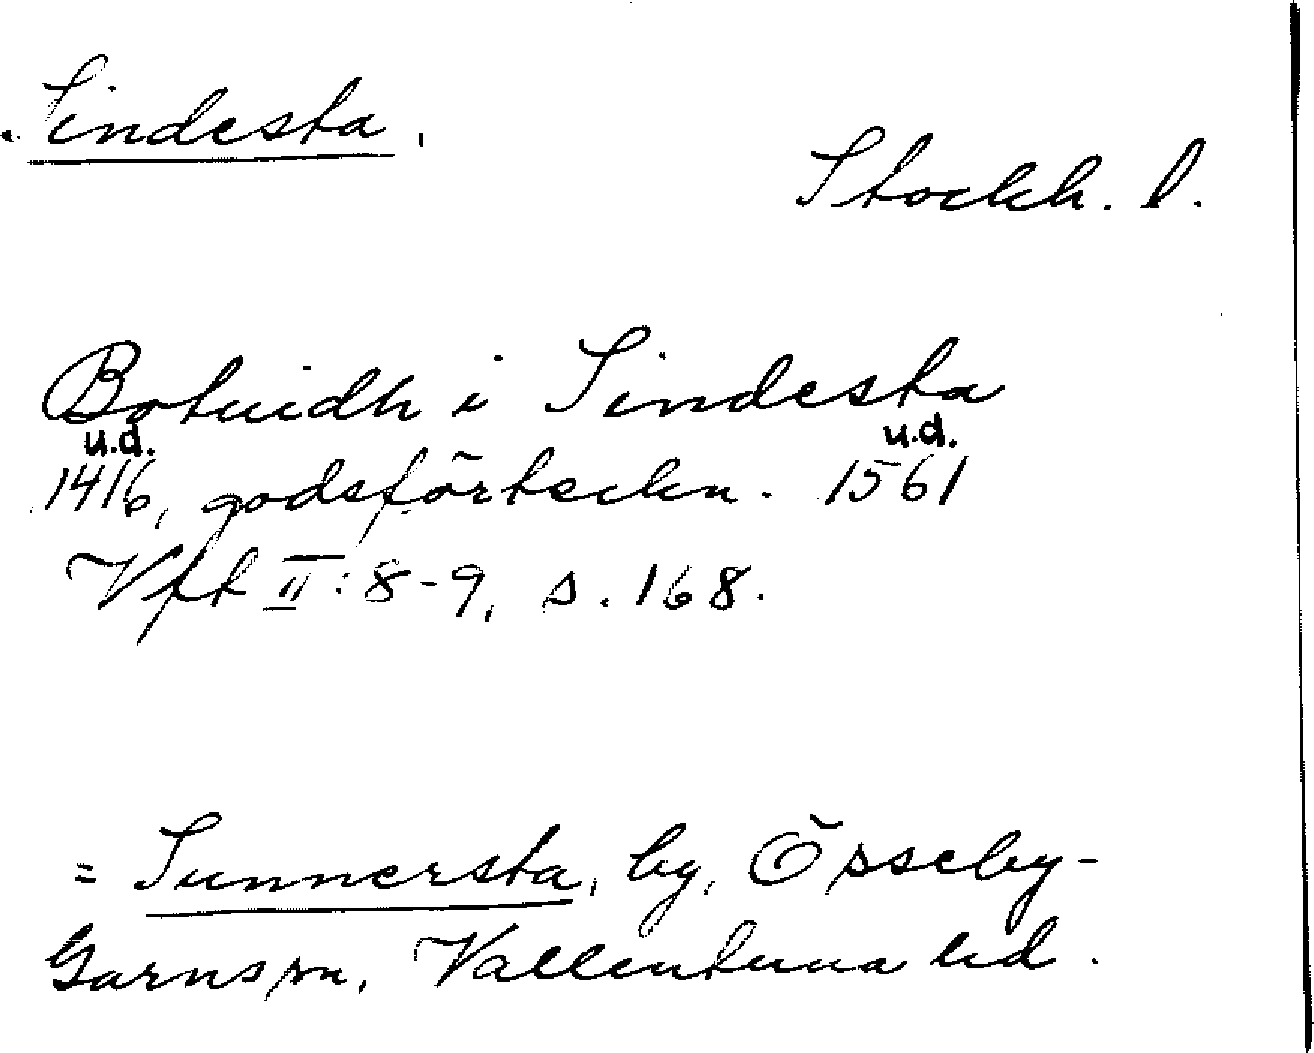 Sindesta.
Stockh. l.
Botuidh i Sindesta
u.d. u.d.
1416, godsförteckn. 1561
Vft II: 8-9, s. 168.
= Sunnersta, by, Össeby-
Garns sn, Vallentuna hd.